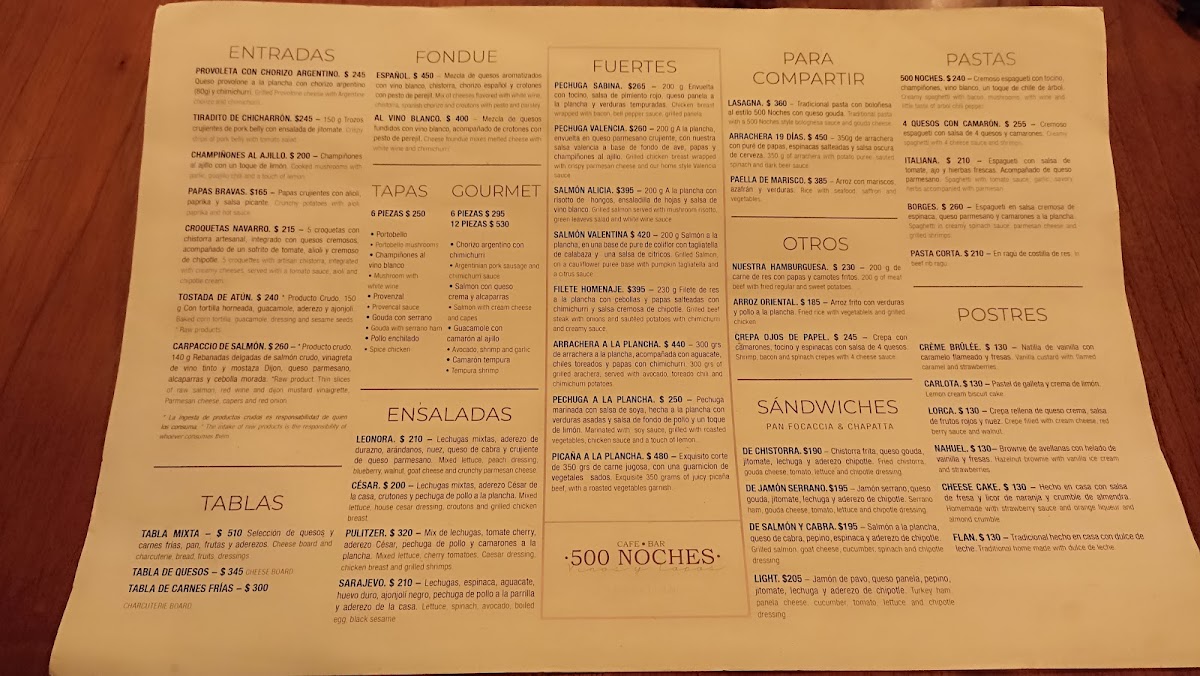 ENTRADAS
PROVOLETA CON CHORIZO ARGENTINO. $ 245
Queso provolone a la plancha con chorizo argentino
(60g) y chimichurri. Grilled Provolone cheese with Argentine
chorizo and chimichurri.
TIRADITO DE CHICHARRÓN. $245 – 150 g Trozos
crujientes de pork belly con ensalada de jitomate. Crispy
drops of pork belly with tomato salad.
CHAMPIÑONES AL AJILLO. $ 200 – Champiñones
al ajillo con un toque de limón. Cooked mushrooms with
garlic, guajillo chili and a touch of lemon.
PAPAS BRAVAS. $165 – Papas crujientes con alioli,
paprika y salsa picante. Crunchy potatoes with aioli,
paprika and hot sauce.
CROQUETAS NAVARRO. $ 215 - 5 croquetas con
chistorra artesanal, integrado con quesos cremosos,
acompañado de un sofrito de tomate, alioli y cremoso
de chipotle. 5 croquettes with artisan chistorra, integrated
with creamy cheeses, served with a tomato sauce, aioli and
chipotle cream.
TOSTADA DE ATÚN. $ 240 * Producto Crudo. 150
g Con tortilla horneada, guacamole, aderezo y ajonjolí.
Baked corn tortilla, guacamole, dressing and sesame seeds
* Raw products.
CARPACCIO DE SALMÓN. $ 260 – * Producto crudo.
140 g Rebanadas delgadas de salmón crudo, vinagreta
de vino tinto y mostaza Dijon, queso parmesano,
alcaparras y cebolla morada. *Raw product. Thin slices
of raw salmon, red wine and dijon, mustard vinaigrette,
Parmesan cheese, capers and red onion.
* La ingesta de productos crudos es responsabilidad de quien
los consuma. * The intake of raw products is the responsibility of
whoever consumes them.
TABLAS
TABLA MIXTA – $ 510 Selección de quesos y
carnes frías, pan, frutas y aderezos Cheese board and
charcuterie, bread, fruits, dressings
TABLA DE QUESOS – $ 345 CHEESE BOARD
TABLA DE CARNES FRÍAS – $ 300
CHARCUTERIE BOARD
FONDUE
ESPAÑOL. $ 450 – Mezcla de quesos aromatizados
con vino blanco, chistorra, chorizo español y crotones
con pesto de perejil. Mix of cheeses flavored with white wine,
chistorra, spanish chorizo and croutons with pesto and parsley.
AL VINO BLANCO. $ 400 – Mezcla de quesos
fundidos con vino blanco, acompañado de crotones con
pesto de perejil. Cheese foundue mixes melted cheese with
white wine and chimichurri
TAPAS
6 PIEZAS $ 250
• Portobello
• Portobello mushrooms
• Champiñones al
vino blanco
• Mushroom with
white wine
• Provenzal
• Provencal sauce
• Gouda con serrano
• Gouda with serrano ham
• Pollo enchilado
• Spice chicken
GOURMET
6 PIEZAS $ 295
12 PIEZAS $ 530
• Chorizo argentino con
chimichurri
• Argentinian pork sausage and
chimichurri sauce
• Salmón con queso
crema y alcaparras
• Salmon with cream cheese
and capes
• Guacamole con
camarón al ajillo
• Avocado, shrimp and garlic
• Camarón tempura
• Tempura shrimp
ENSALADAS
LEONORA. $ 210 – Lechugas mixtas, aderezo de
durazno, arándanos, nuez, queso de cabra y crujiente
de queso parmesano. Mixed lettuce, peach dressing,
blueberry, walnut, goat cheese and crunchy parmesan cheese.
CÉSAR. $ 200 – Lechugas mixtas, aderezo César de
la casa, crutones y pechuga de pollo a la plancha. Mixed
lettuce, house cesar dressing, croutons and grilled chicken
breast.
PULITZER. $ 320 – Mix de lechugas, tomate cherry,
aderezo César, pechuga de pollo y camarones a la
plancha. Mixed lettuce, cherry tomatoes, Caesar dressing,
chicken breast and grilled shrimps
SARAJEVO. $ 210 – Lechugas, espinaca, aguacate,
huevo duro, ajonjolí negro, pechuga de pollo a la parrilla
y aderezo de la casa. Lettuce, spinach, avocado, boiled
egg, black sesame
FUERTES
PECHUGA SABINA. $265 – 200 g Envuelta
con tocino, salsa de pimiento rojo, queso panela a
la plancha y verduras tempuradas. Chicken breast
wrapped with bacon, bell pepper sauce, grilled panela
PECHUGA VALENCIA. $260 – 200 g A la plancha,
envuelta en queso parmesano crujiente, con nuestra
salsa valencia a base de fondo de ave, papas y
champiñones al ajillo. Grilled chicken breast wrapped
with crispy parmesan cheese and our home style Valencia
sauce
SALMÓN ALICIA. $395 – 200 g A la plancha con
risotto de hongos, ensaladilla de hojas y salsa de
vino blanco. Grilled salmon served with mushroom risotto,
green leaves salad and white wine sauce.
SALMÓN VALENTINA $ 420 – 200 g Salmón a la
plancha, en una base de puré de coliflor con tagliatella
de calabaza y una salsa de cítricos. Grilled Salmon,
on a cauliflower purée base with pumpkin tagliatella and
a citrus sauce.
FILETE HOMENAJE. $395 – 230 g Filete de res
a la plancha con cebollas y papas salteadas con
chimichurri y salsa cremosa de chipotle. Grilled beef
steak with onions and sautéed potatoes with chimichurri
and creamy sauce.
ARRACHERA A LA PLANCHA. $ 440 – 300 grs
de arrachera a la plancha, acompañada con aguacate,
chiles toreados y papas con chimichurri. 300 grs of
grilled arachera, served with avocado, toreado chili and
chimichurri potatoes.
PECHUGA A LA PLANCHA. $ 250 – Pechuga
marinada con salsa de soya, hecha a la plancha con
verduras asadas y salsa de fondo de pollo y un toque
de limón. Marinated with, soy sauce, grilled with roasted
vegetables, chicken sauce and a touch of lemon.
PICAÑA A LA PLANCHA. $ 480 – Exquisito corte
de 350 grs de carne jugosa, con una guarnición de
vegetales asados. Exquisite 350 grams of juicy picaña
beef, with a roasted vegetables garnish.
CAFE • BAR
·500 NOCHES·
PARA
COMPARTIR
LASAGNA. $ 360 – Tradicional pasta con boloñesa
al estilo 500 Noches con queso gouda. Traditional pasta
with a 500 Noches style bolognese sauce and gouda cheese.
ARRACHERA 19 DÍAS. $ 450 – 350g de arrachera
con puré de papas, espinacas salteadas y salsa oscura
de cerveza. 350 g of arrachera with potato puree, sauteed
spinach and dark beer sauce.
PAELLA DE MARISCO. $ 385 – Arroz con mariscos,
azafrán y verduras. Rice with seafood, saffron and
vegetables.
OTROS
NUESTRA HAMBURGUESA. $ 230 – 200 g de
carne de res con papas y camotes fritos. 200 g of meat
beef with fried regular and sweet potatoes.
ARROZ ORIENTAL. $ 185 – Arroz frito con verduras
y pollo a la plancha. Fried rice with vegetables and grilled
chicken
CREPA OJOS DE PAPEL. $ 245 – Crepa con
camarones, tocino y espinacas con salsa de 4 quesos.
Shrimp, bacon and spinach crepes with 4 cheese sauce.
SÁNDWICHES
PAN FOCACCIA & CHAPATTA
DE CHISTORRA. $190 – Chistorra frita, queso gouda,
jitomate, lechuga y aderezo chipotle. Fried chistorra,
gouda cheese, tomato, lettuce and chipotle dressing.
DE JAMÓN SERRANO.$195 – Jamón serrano, queso
gouda, jitomate, lechuga y aderezo de chipotle. Serrano
ham, gouda cheese, tomato, lettuce and chipotle dressing.
DE SALMÓN Y CABRA. $195 – Salmón a la plancha,
queso de cabra, pepino, espinaca y aderezo de chipotle.
Grilled salmon, goat cheese, cucumber, spinach and chipotle
dressing
LIGHT. $205 – Jamón de pavo, queso panela, pepino,
jitomate, lechuga y aderezo de chipotle. Turkey ham,
panela cheese, cucumber, tomato, lettuce and chipotle
dressing
PASTAS
500 NOCHES. $ 240 – Cremoso espagueti con tocino,
champiñones, vino blanco, un toque de chile de árbol.
Creamy spaghetti with bacon, mushrooms, with wine and
little taste of arbol chili pepper.
4 QUESOS CON CAMARÓN. $ 255 – Cremoso
espagueti con salsa de 4 quesos y camarones. Creamy
spaghetti with 4 cheese sauce and shrimp.
ITALIANA. $ 210 – Espagueti con salsa de
tomate, ajo y hierbas frescas. Acompañado de queso
parmesano. Spaghetti with tomato sauce, garlic, savory
herbs accompanied with parmesan.
BORGES. $ 260 – Espagueti en salsa cremosa de
espinaca, queso parmesano y camarones a la plancha.
Spaghetti in a creamy spinach sauce, parmesan cheese and
grilled shrimps.
PASTA CORTA. $ 210 – En ragú de costilla de res. In
beef rib ragu
POSTRES
CRÉME BRÛLÉE. $ 130 – Natilla de vainilla con
caramelo flameado y fresas. Vanilla custard with flamed
caramel and strawberries.
CARLOTA. $ 130 – Pastel de galleta y crema de limón.
Lemon cream biscuit cake.
LORCA. $ 130 – Crepa rellena de queso crema, salsa
de frutos rojos y nuez. Crepe filled with cream cheese, red
berry sauce and walnut.
NAHUEL. $ 130– Brownie de avellanas con helado de
vainilla y fresas. Hazelnut brownie with vanilla ice cream
and strawberries.
CHEESE CAKE. $ 130 – Hecho en casa con salsa
de fresa y licor de naranja y crumble de almendra.
Homemade with strawberry sauce and orange liqueur and
almond crumble.
FLAN. $ 130 – Tradicional hecho en casa con dulce de
leche. Traditional home made with dulce de leche.